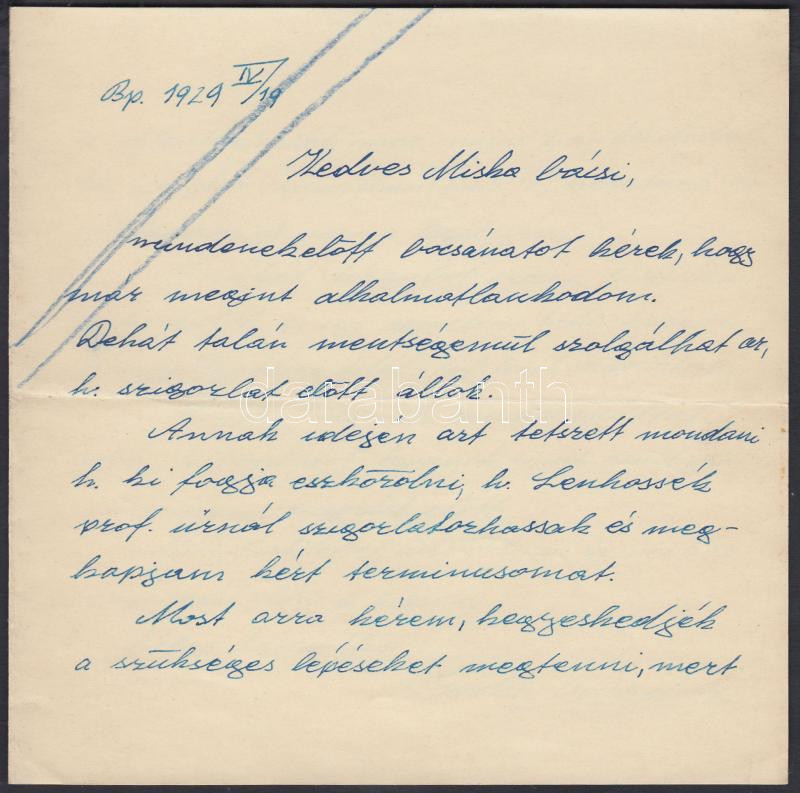 Bp. 1929 IV/19
Kedves Miska bácsi,
mindenekelőtt bocsánatot kérek, hogy
már megint alkalmatlankodom.
Dehát talán mentségemül szolgálhat az,
h. szigorlat előtt állok.
darabanth
Annak idején azt tetszett mondani
h. ki fogja eszközölni, h. Lenhossék
prof. úrnál szigorlatozhassak és meg-
kapjam kért terminusomat.
Most arra kérem, kegyeskedjék
a szükséges lépéseket megtenni, mert